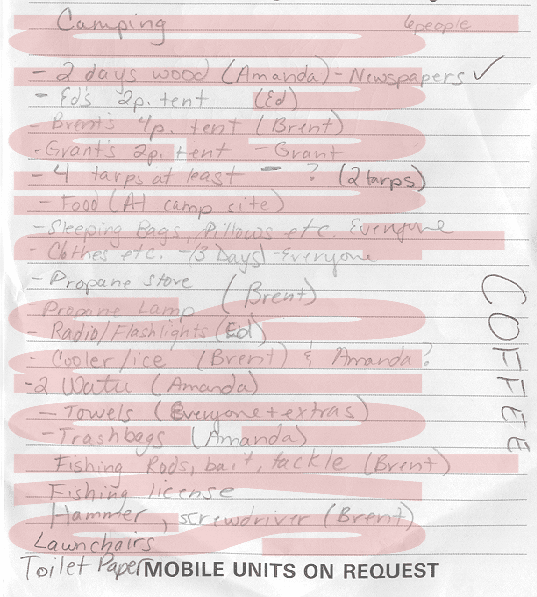 Camping 6 people
- 2 days wood (Amanda) - Newspapers ✓
- Ed's 2p. tent (Ed)
- Brent's 4p. tent (Brent)
- Grant's 2p. tent - Grant
- 4 tarps at least - ? (2 tarps)
- Food (At camp site)
- Sleeping Bags, Pillows etc. Everyone
- Clothes etc. - (3 Days) - Everyone
- Propane stove (Brent)
Propane Lamp
- Radio/Flashlights (Ed)
- Cooler/ice (Brent) & Amanda?
- 2 Water (Amanda)
- Towels (Everyone + extras)
- Trashbags (Amanda)
Fishing Rods, bait, tackle (Brent)
Fishing license
Hammer, screwdriver (Brent)
Lawnchairs
Toilet Paper MOBILE UNITS ON REQUEST
COFFEE